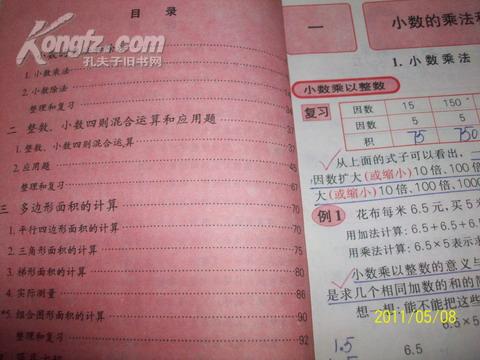 目 录
Kongfz.com
孔夫子旧书网
1. 小数乘法
2. 小数除法
整理和复习 34
二 整数、小数四则混合运算和应用题 37
1. 整数、小数四则混合运算 37
2. 应用题 45
整理和复习 67
三 多边形面积的计算 70
1. 平行四边形面积的计算 70
2. 三角形面积的计算 75
3. 梯形面积的计算 80
4. 实际测量 86
*5. 组合图形面积的计算 90
整理和复习 92
一 小数的乘法和
1. 小数乘法
小数乘以整数
复习
因数 15 150
因数 5 5
积 75 750
从上面的式子可以看出，
因数扩大(或缩小)10倍、100倍、
大(或缩小)10倍、100倍、1000
例1 花布每米 6.5 元，买 5 米
用加法计算：6.5+6.5+6.5
用乘法计算：6.5×5表示求
小数乘以整数的意义与
是求几个相同加数的和的简
想一想：能不能把这些
6.5×5
1.5 6.5
2011/05/08